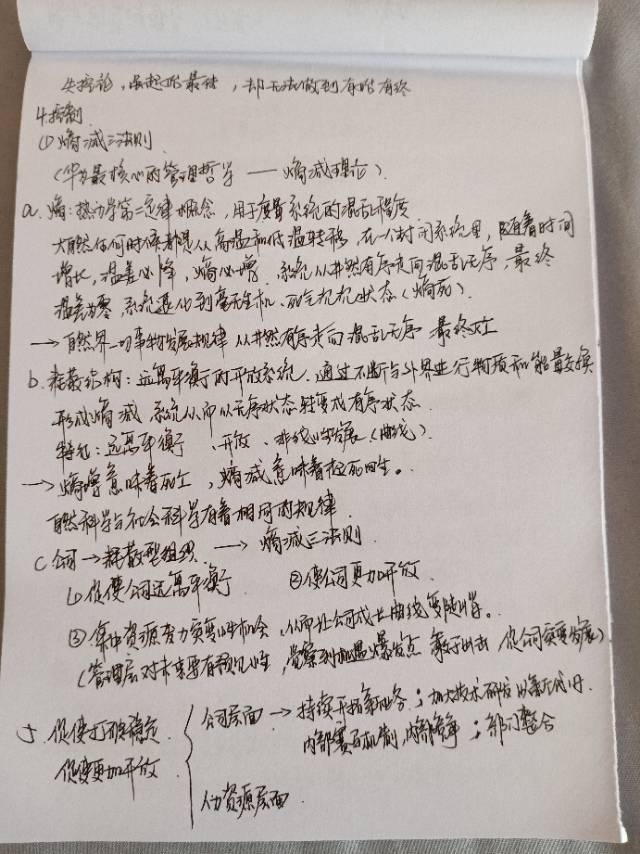 失控论,虽起始最佳,却无法做到有始有终
4控制
①熵减三法则
(华为最核心的管理哲学——熵减理论).
a. 熵:热力学第二定律概念,用于度量系统的混乱程度
大自然任何时候都是从高温向低温转移,在一个封闭系统里,随着时间
增长,温差必降,熵必增.系统从井然有序走向混乱无序,最终
温差为零,系统退化到毫无生机、死气沉沉状态(熵死).
→自然界一切事物发展规律 从井然有序走向混乱无序 最终死亡
b. 耗散结构:远离平衡的开放系统.通过不断与外界进行物质和能量交换
形成熵减 系统从而从无序状态转变成有序状态.
特征:远离平衡、开放、非线性发展(曲线).
→熵增意味着死亡,熵减意味着起死回生。
自然科学与社会科学有着相同的规律
c 公司→耗散型组织 → 熵减三法则.
①促使公司远离平衡 ②使公司更加开放
③集中资源着力突变性机会,从而让公司成长曲线变陡峭。
(管理层对未来要有预见性,觉察到机遇爆发点 敢于出击 使公司突变发展)
促使打破稳定 公司层面→持续开拓新业务;加大技术研发
促使更加开放 内部赛马机制,内部竞争;部门整合
人力资源层面